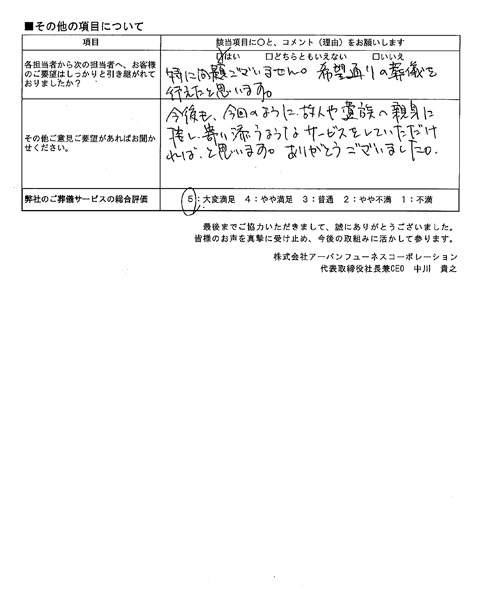 ■その他の項目について
項目 該当項目に○と、コメント（理由）をお願いします
各担当者から次の担当者へ、お客様
のご要望はしっかりと引き継がれて
おりましたか？
☑はい □どちらともいえない □いいえ
特に問題ございません。希望通りの葬儀を
行えたと思います。
その他ご意見ご要望があればお聞か
せください。
今後も、今回のように故人や遺族の親身に
接し、寄り添うようなサービスをしていただけ
れば、と思います。ありがとうございました。
弊社のご葬儀サービスの総合評価 5：大変満足 4：やや満足 3：普通 2：やや不満 1：不満
最後までご協力いただきまして、誠にありがとうございました。
皆様のお声を真摯に受け止め、今後の取組みに活かして参ります。
株式会社アーバンフューネスコーポレーション
代表取締役社長兼CEO 中川 貴之